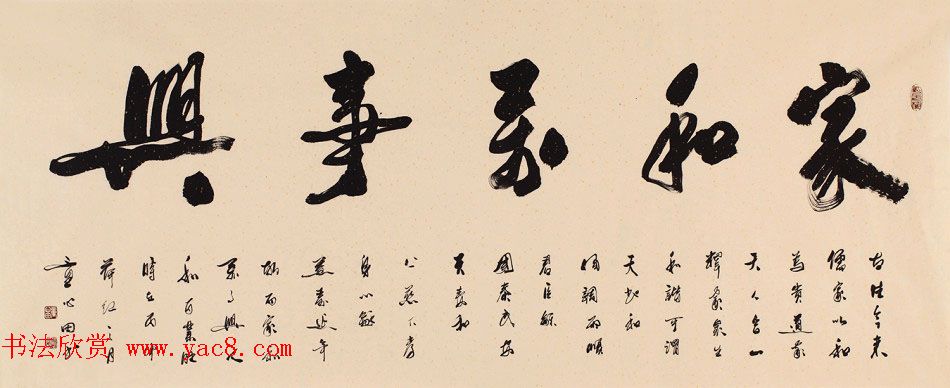 家和萬事興
古往今來
儒家以和
為貴道家
天人合一
釋家衆生
和諧可謂
天地和
調雨順
君臣
國泰民安
夫妻和
上慈下孝
身心
益壽延年
故而家和
萬事興人
和百業旺
時在丙申
荷红之月
童心田
书法欣赏 www.yac8.com